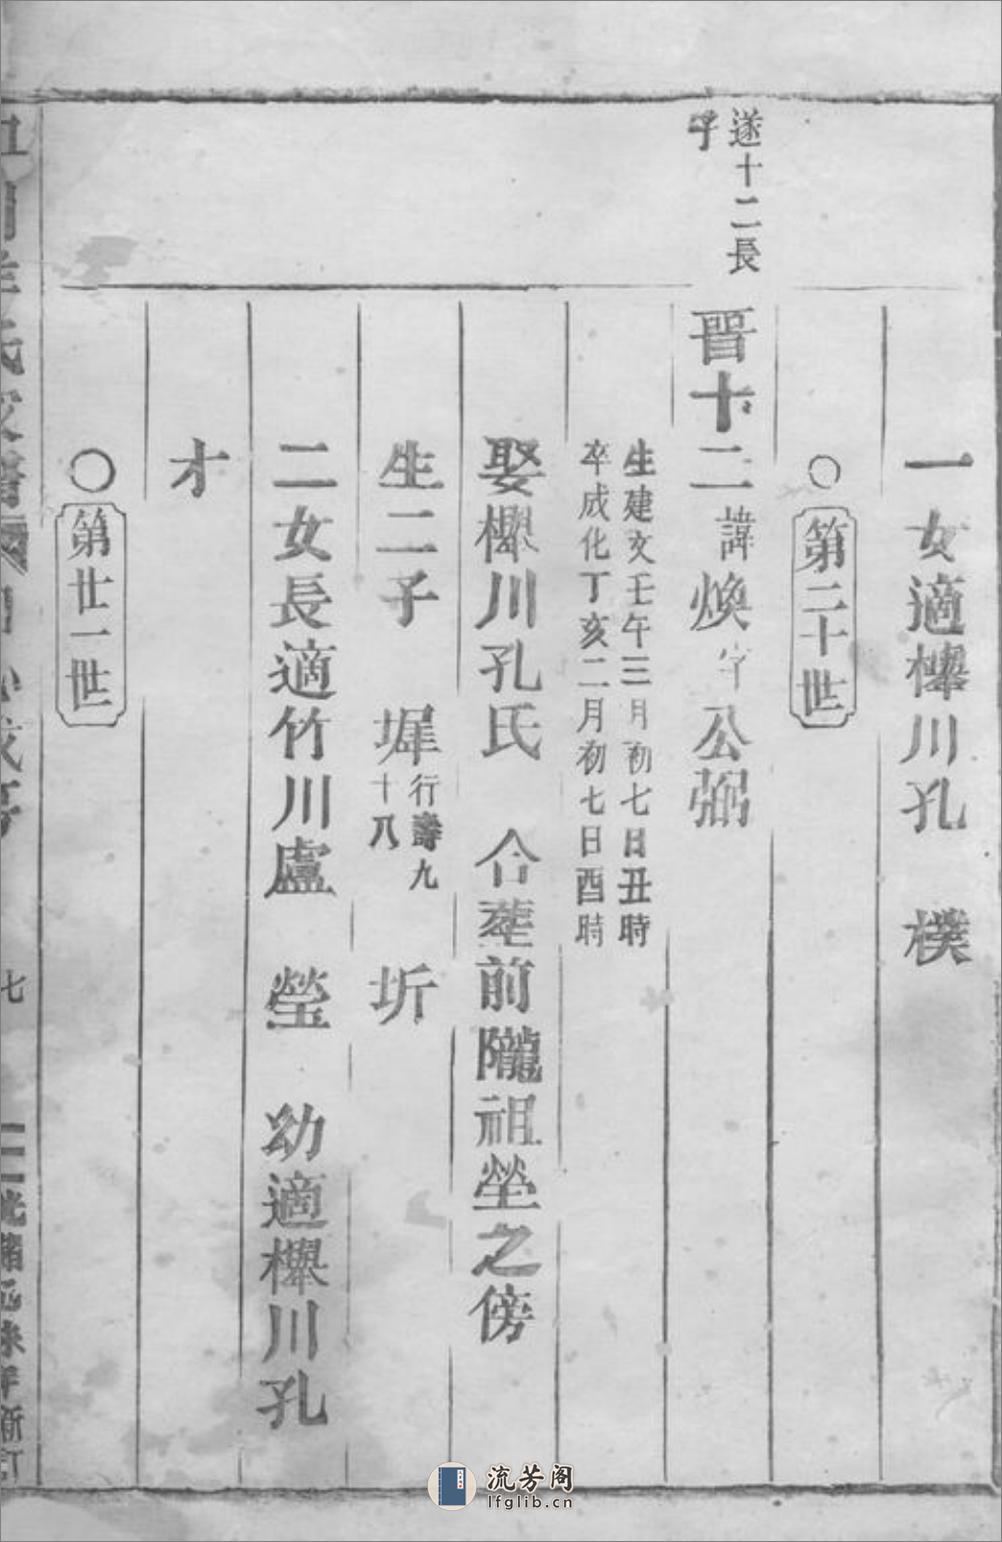 一女適櫸川孔　樸
○第二十世
遂十二長
子
晉十二諱煥字公弼
生建文壬午三月初七日丑時
卒成化丁亥二月初七日酉時
娶櫸川孔氏　合塟前隴祖塋之傍
生二子　墀行壽九十八　圻
二女長適竹川盧　瑩　幼適櫸川孔
才
○第廿一世
七
流芳阁
lfglib.cn